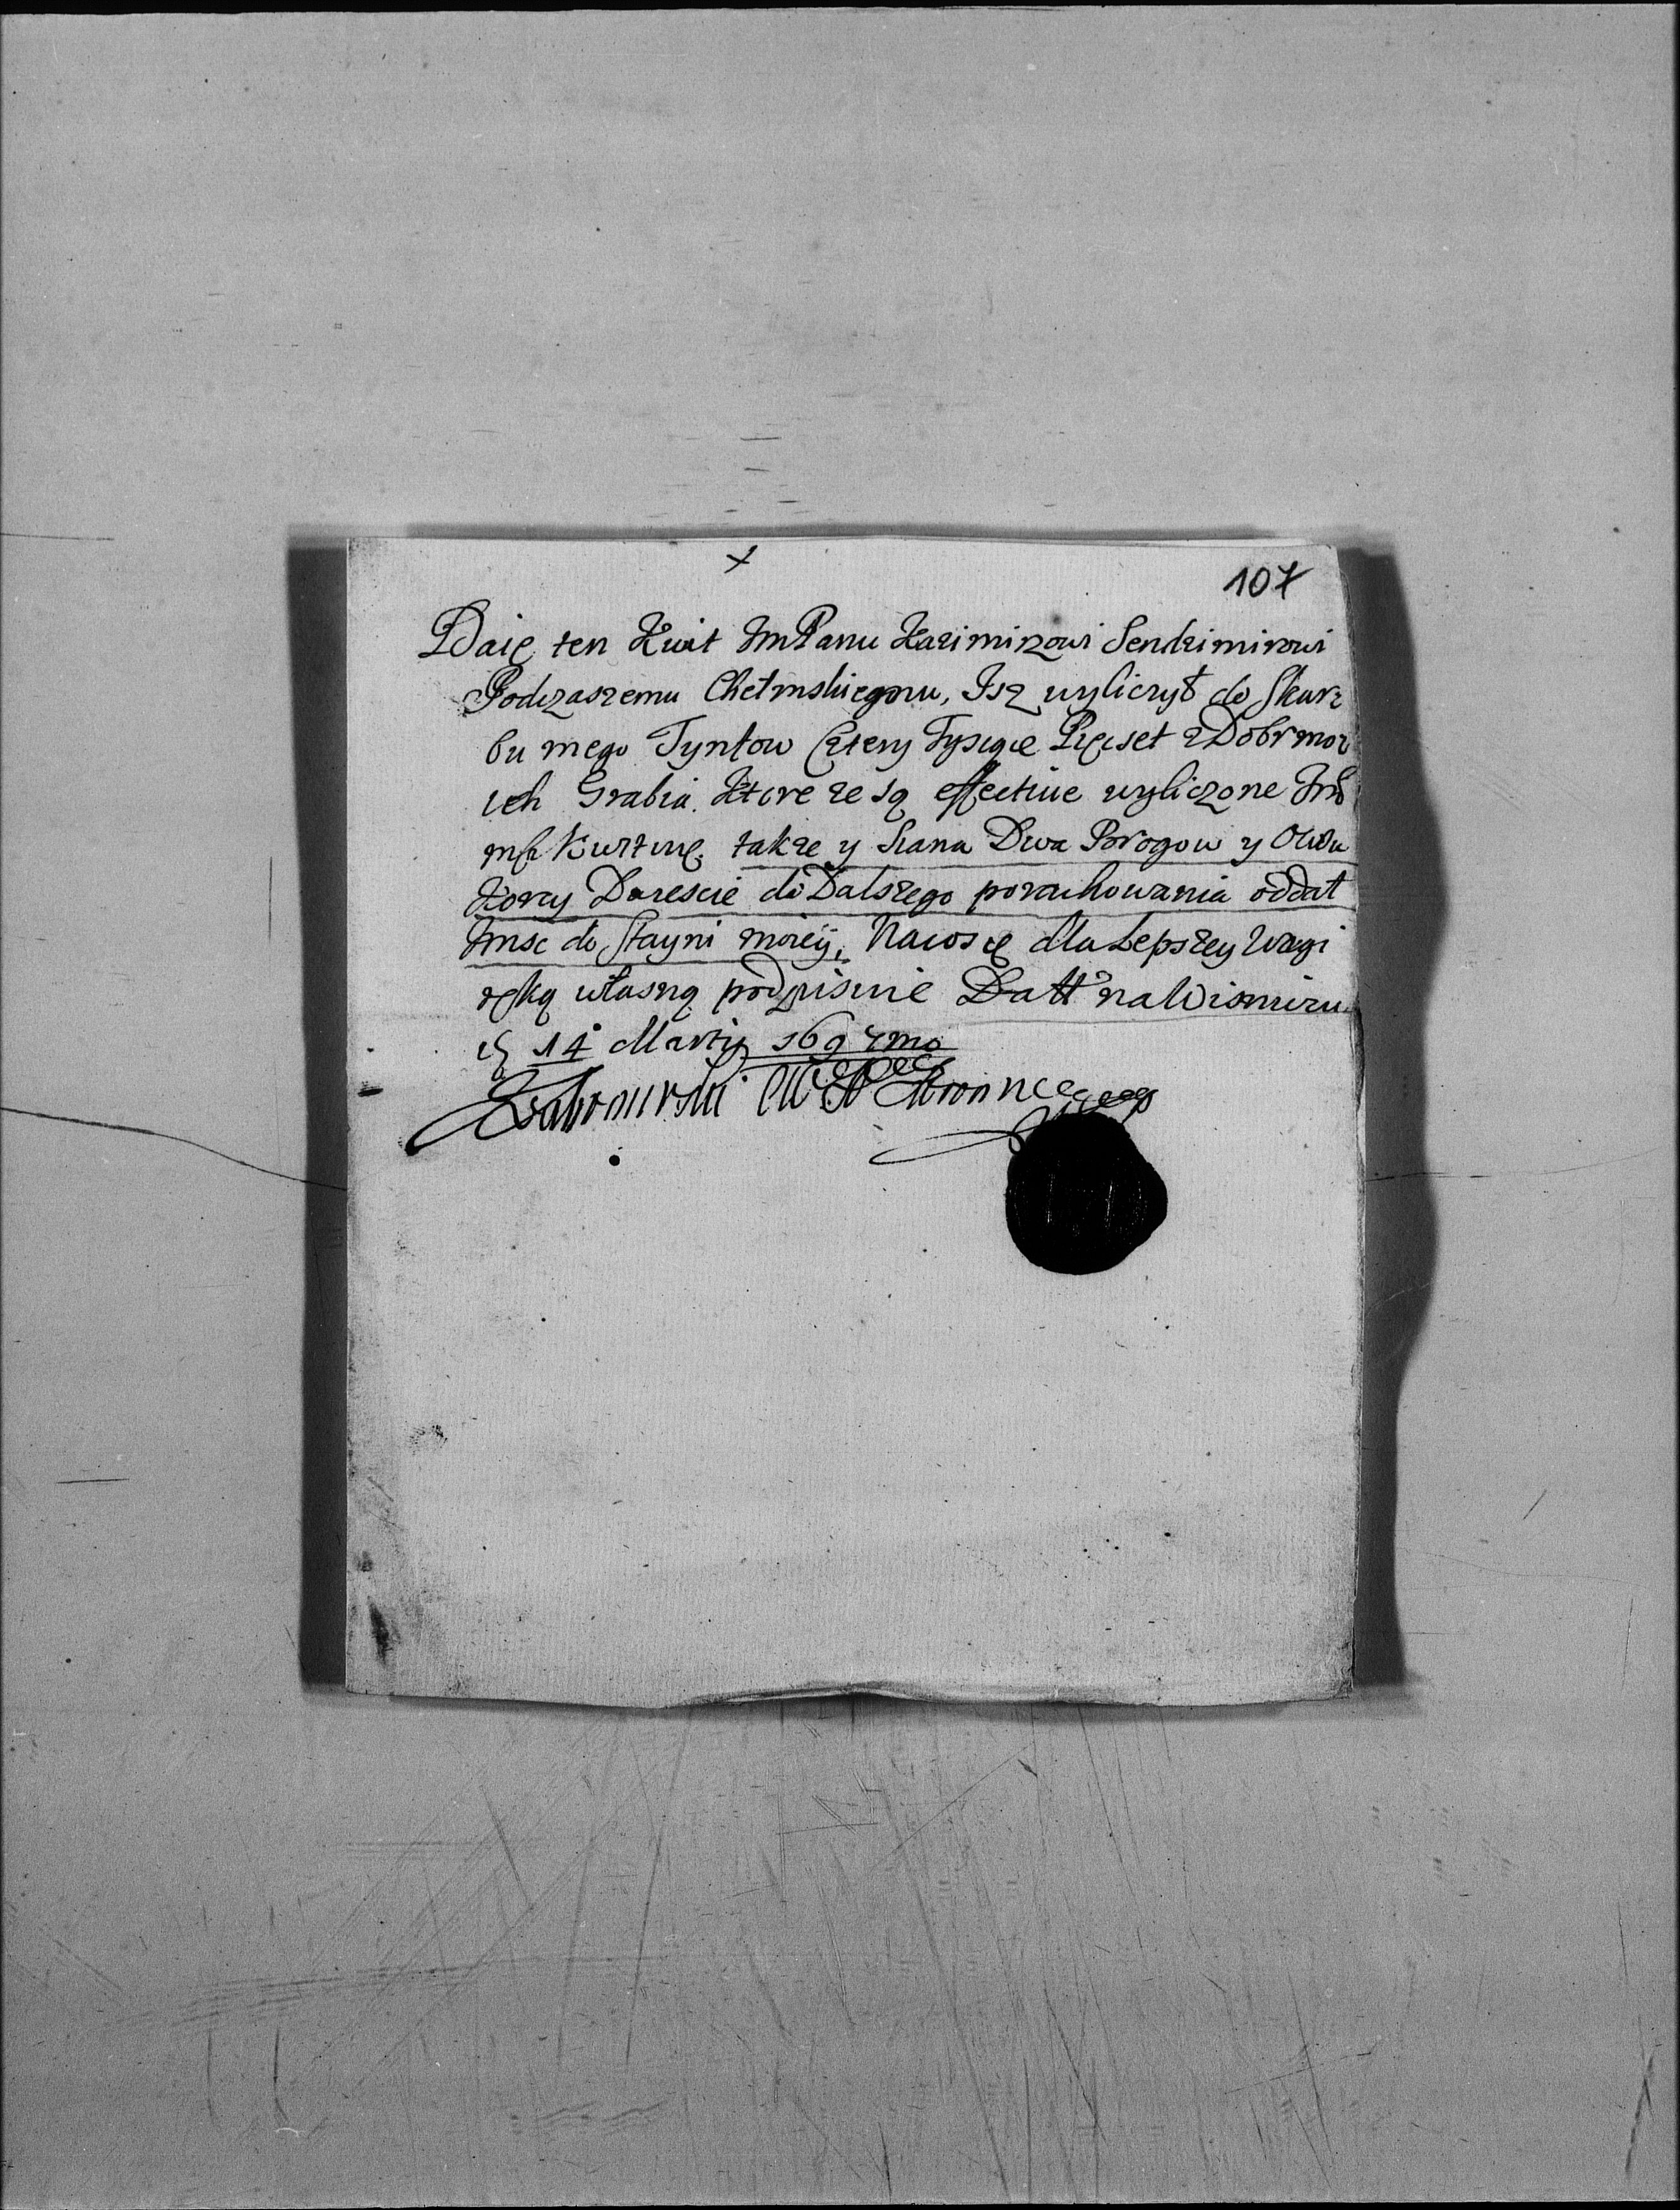 107
Daię ten Kwit JmPanu Kazimirzowi Sendzimirowi
Podczaszemu Chełmskiegmu, Isz wyliczył do Skarz
bu mego Tynfow Cztery Tysiące Pięcset z Dobr moi
ich Grabia. Ktore ze są effective wyliczone Jmś
kwituię, także y Siana Dwa Porogow y Owsa
Korcy Dwiescie do Dalszego porachowania oddał
Jmsc do stayni moiey, Na co się dla Lepszey Wagi
ręką własną podpisuię Datt na Wismirzu
14 Marty 169